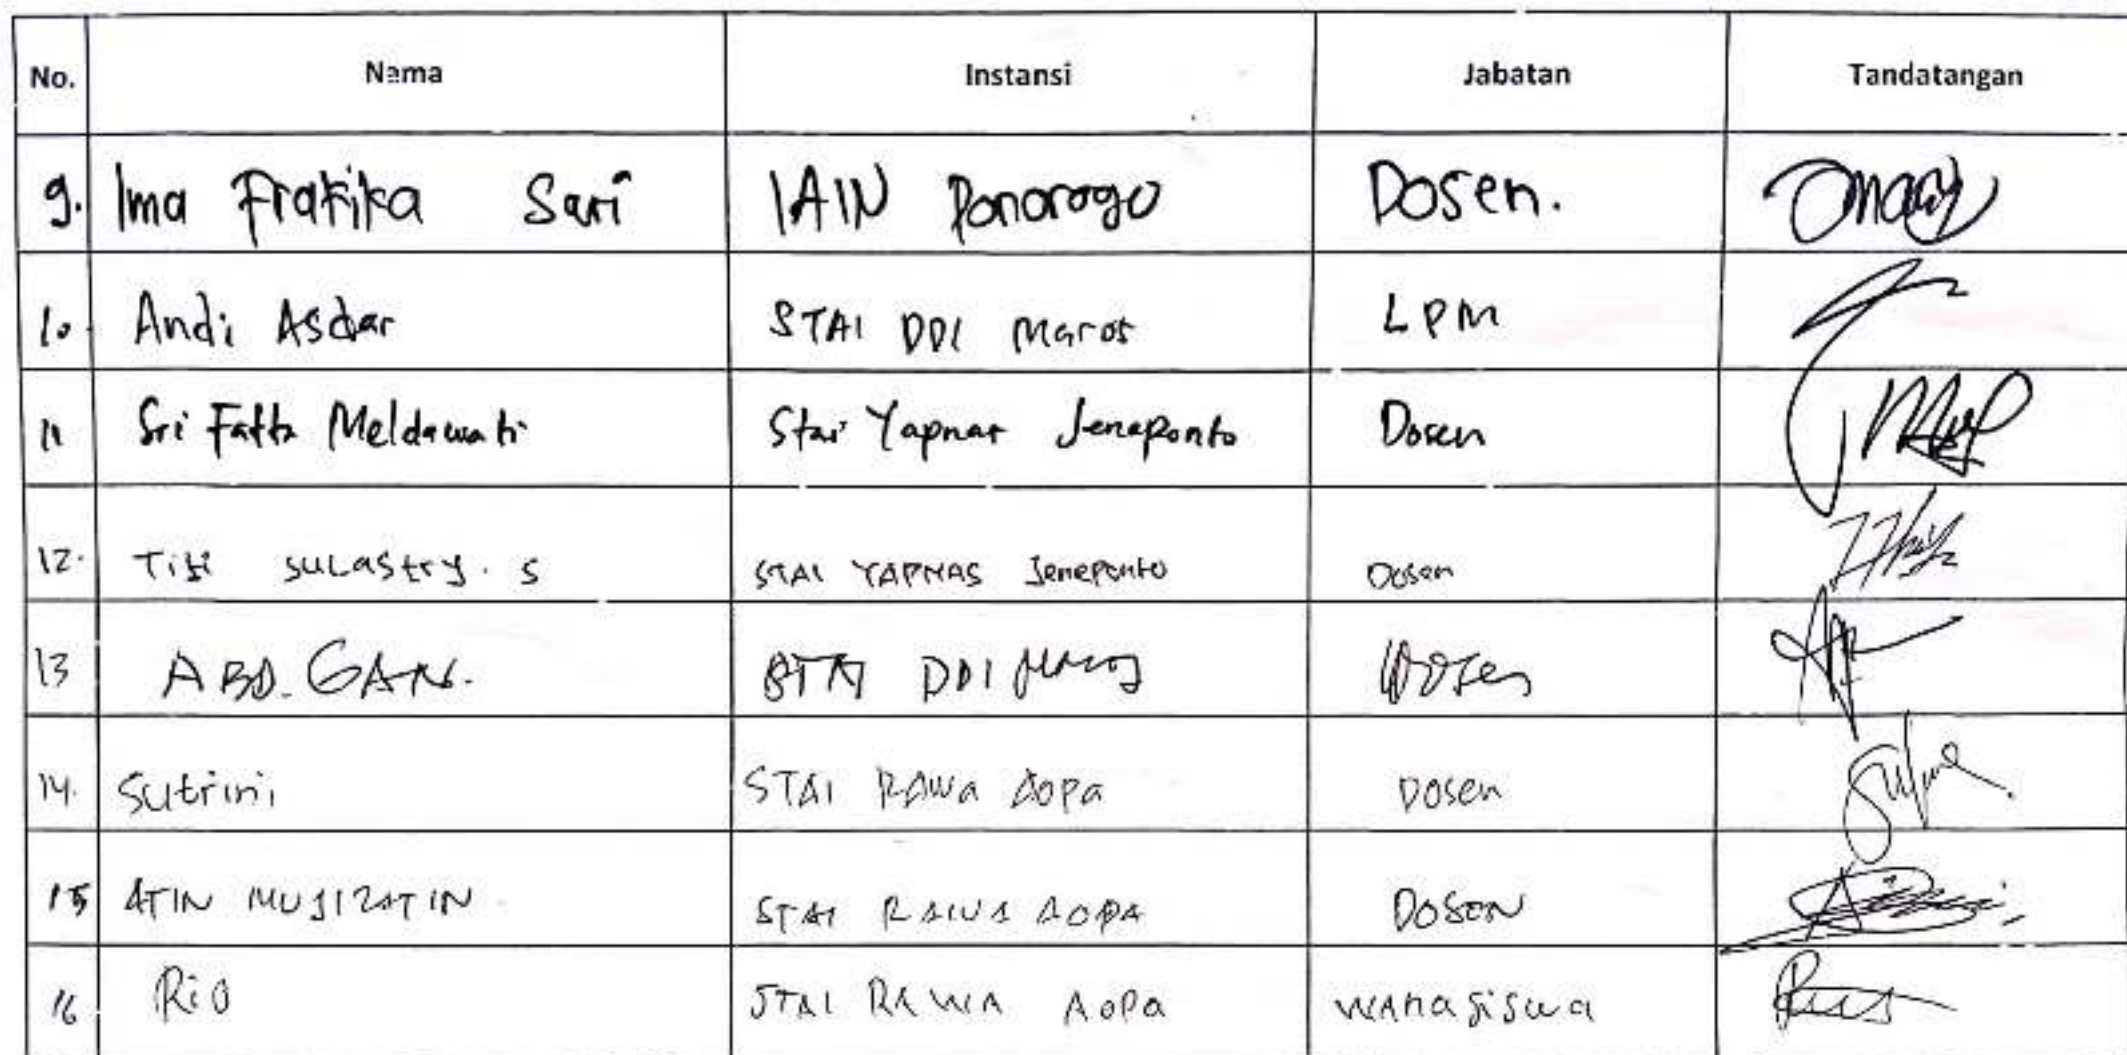 No. Nama Instansi Jabatan Tandatangan
9. Ima Fratika Sari IAIN Ponorogo Dosen.
10. Andi Asdar STAI DDI Maros LPM
11 Sri Fatta Meldawati Stai Yapnas Jeneponto Dosen
12. Titi sulastry. S STAI YAPNAS Jeneponto Dosen
13 ABD. GANI. STAI DDI Maros Dosen
14. Sutrini STAI RAWA Aopa Dosen
15 ATIN MUJIZATIN STAI RAWA AOPA DOSEN
16 Rio STAI RAWA AoPa MAHAsiswa